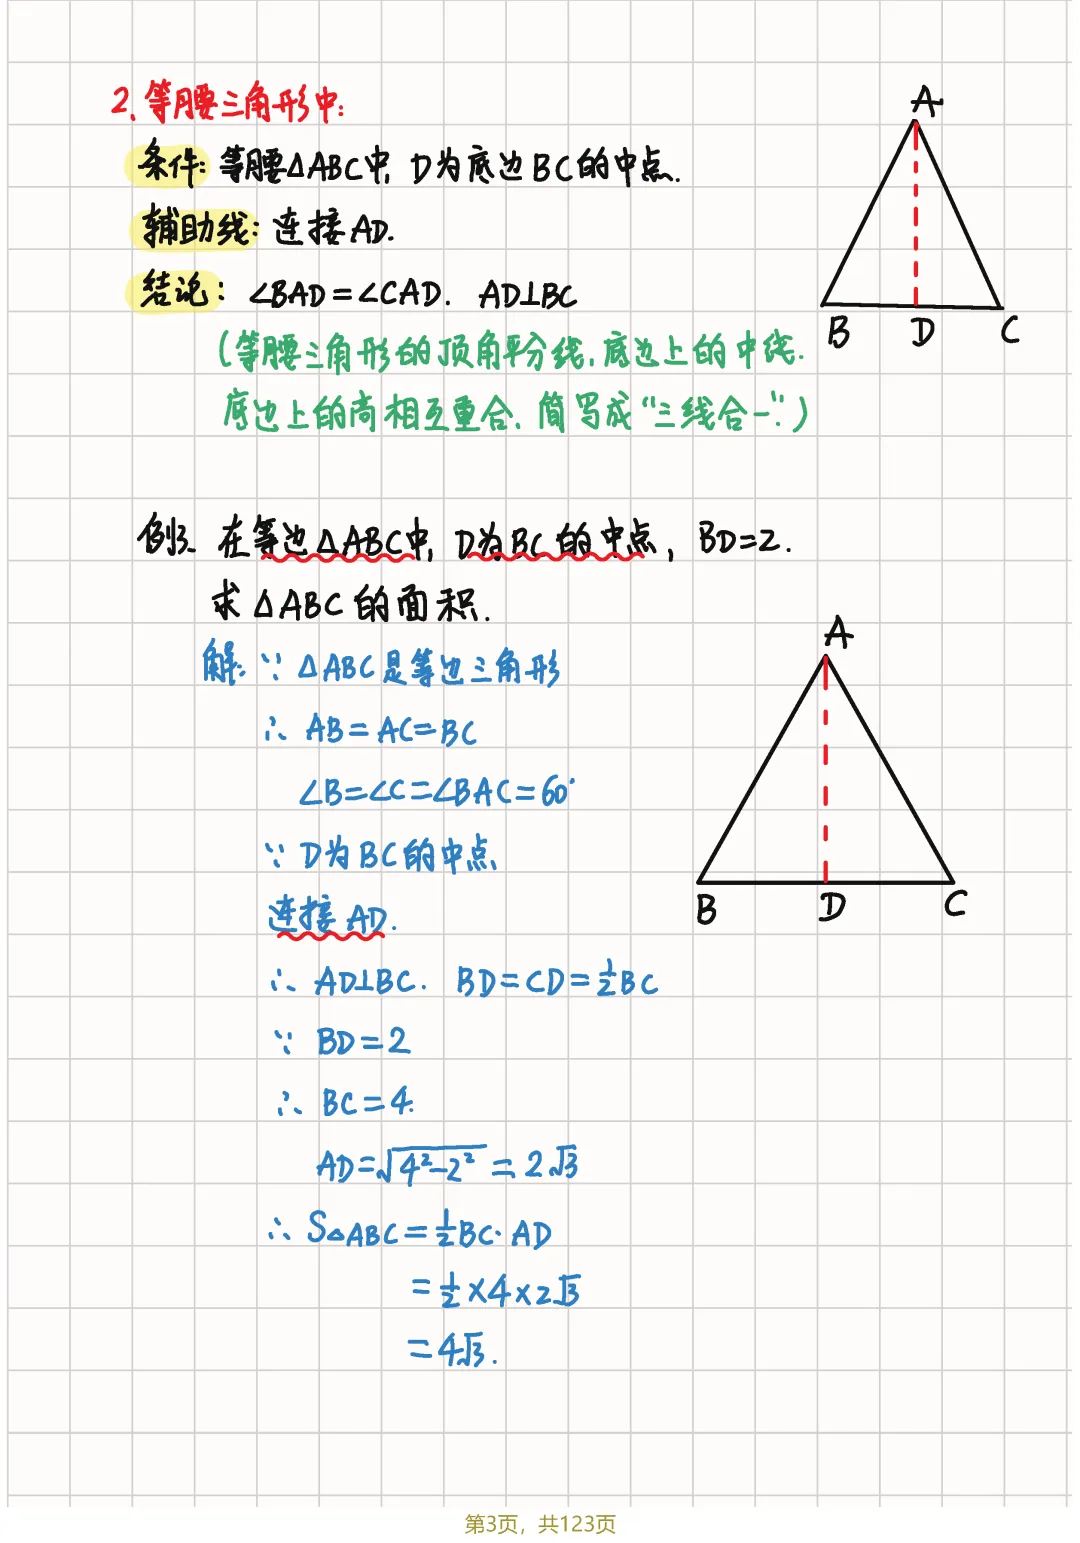 2、等腰三角形中:
A
条件: 等腰△ABC中, D为底边BC的中点.
辅助线: 连接AD.
结论: ∠BAD=∠CAD. AD⊥BC
B D C
(等腰三角形的顶角平分线, 底边上的中线.
底边上的高相互重合. 简写成"三线合一".)
例3. 在等边△ABC中, D为BC的中点, BD=2.
求△ABC的面积.
A
解: ∵ △ABC是等边三角形
∴ AB=AC=BC
∠B=∠C=∠BAC=60°
∵ D为BC的中点
B D C
连接AD.
∴ AD⊥BC. BD=CD=½BC
∵ BD=2
∴ BC=4.
AD=√(4²-2²)=2√3
∴ S△ABC=½BC·AD
=½×4×2√3
=4√3.
第3页，共123页